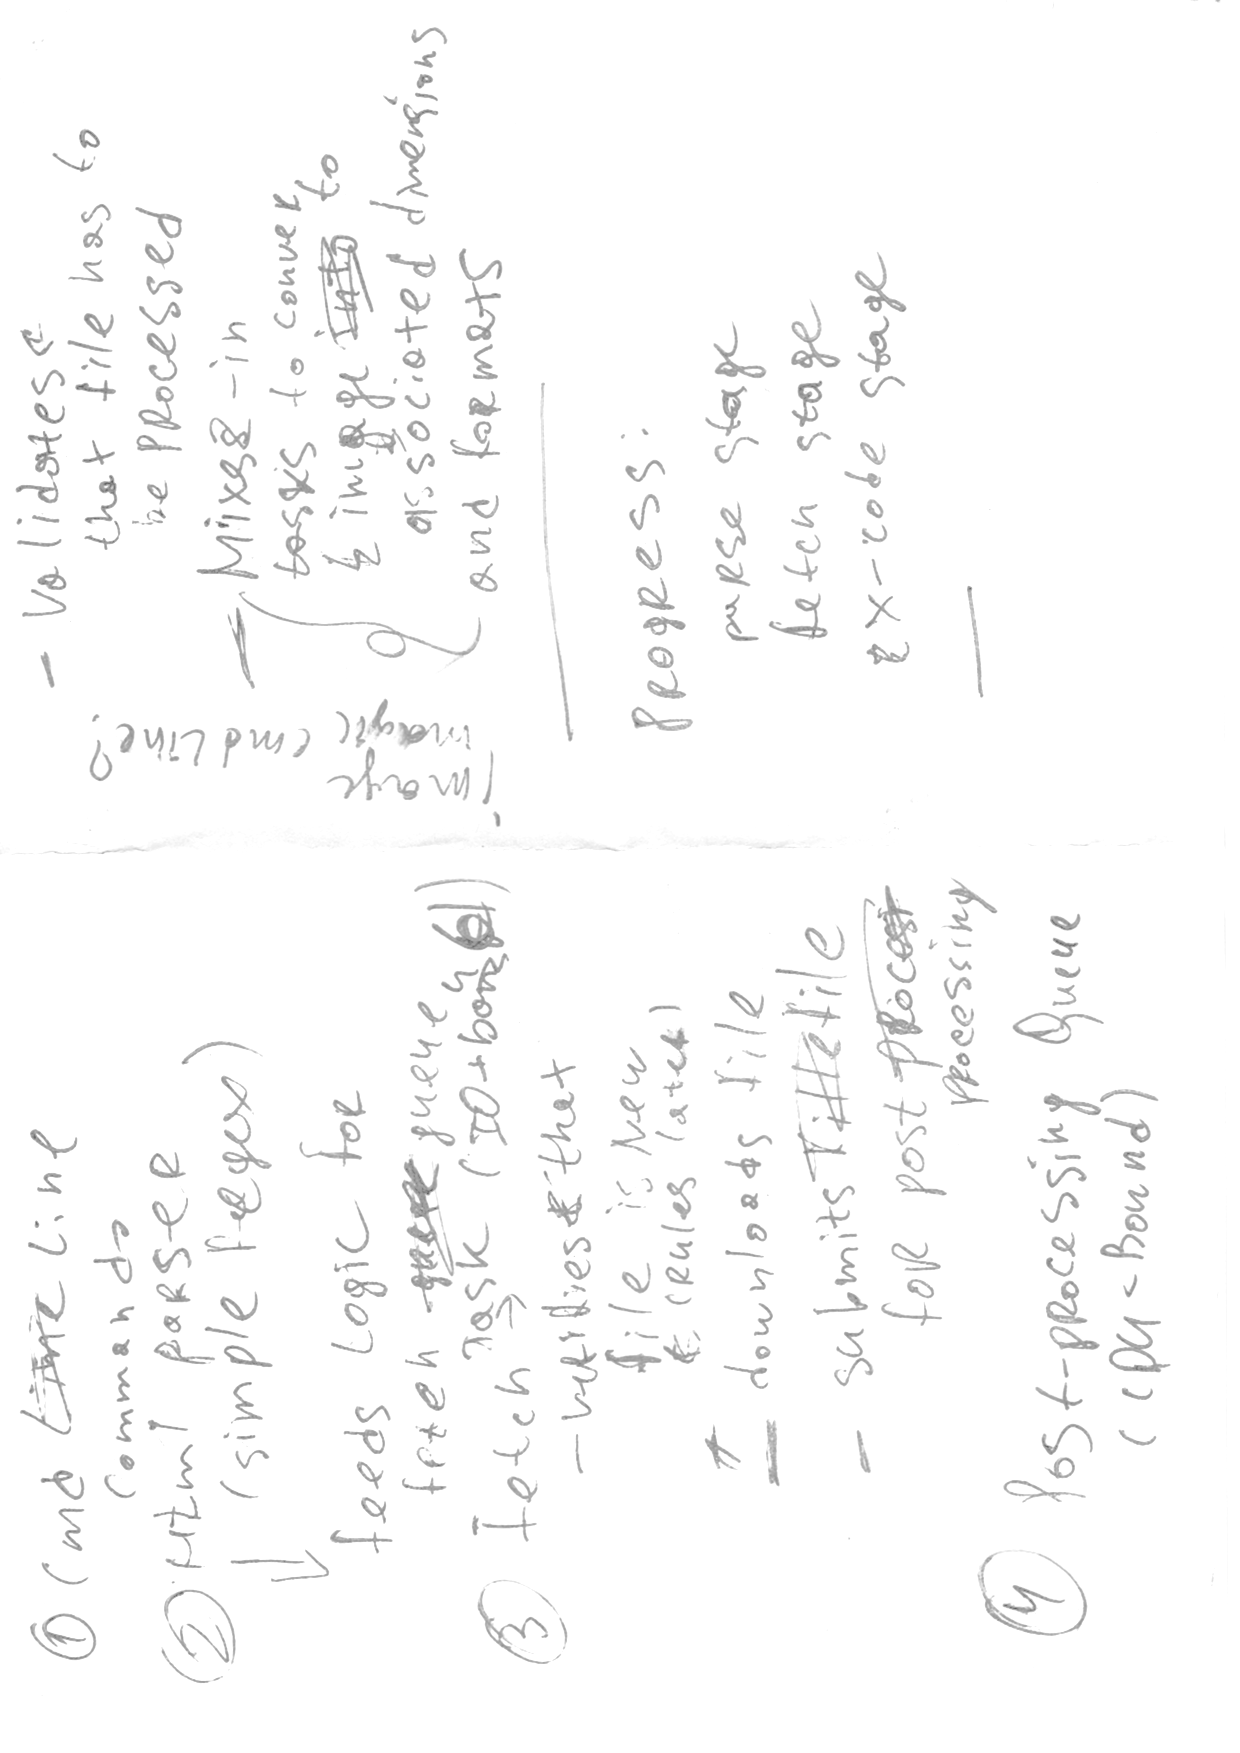 ① Cmd Line
Commands
② Html parser
(simple Regex)
↓ feeds Logic for
fetch queue
③ Fetch Task (IO-bound)
- verifies that
file is New
(rules later)
- downloads file
- submits file
for post
processing
④ Post-processing Queue
(CPU-Bound)
- Validates
that file has to
be processed
- Mixes-in
tasks to conver
image to
associated dimensions
and formats
image
magic cmd Line?
Progress:
parse stage
fetch stage
x-code stage